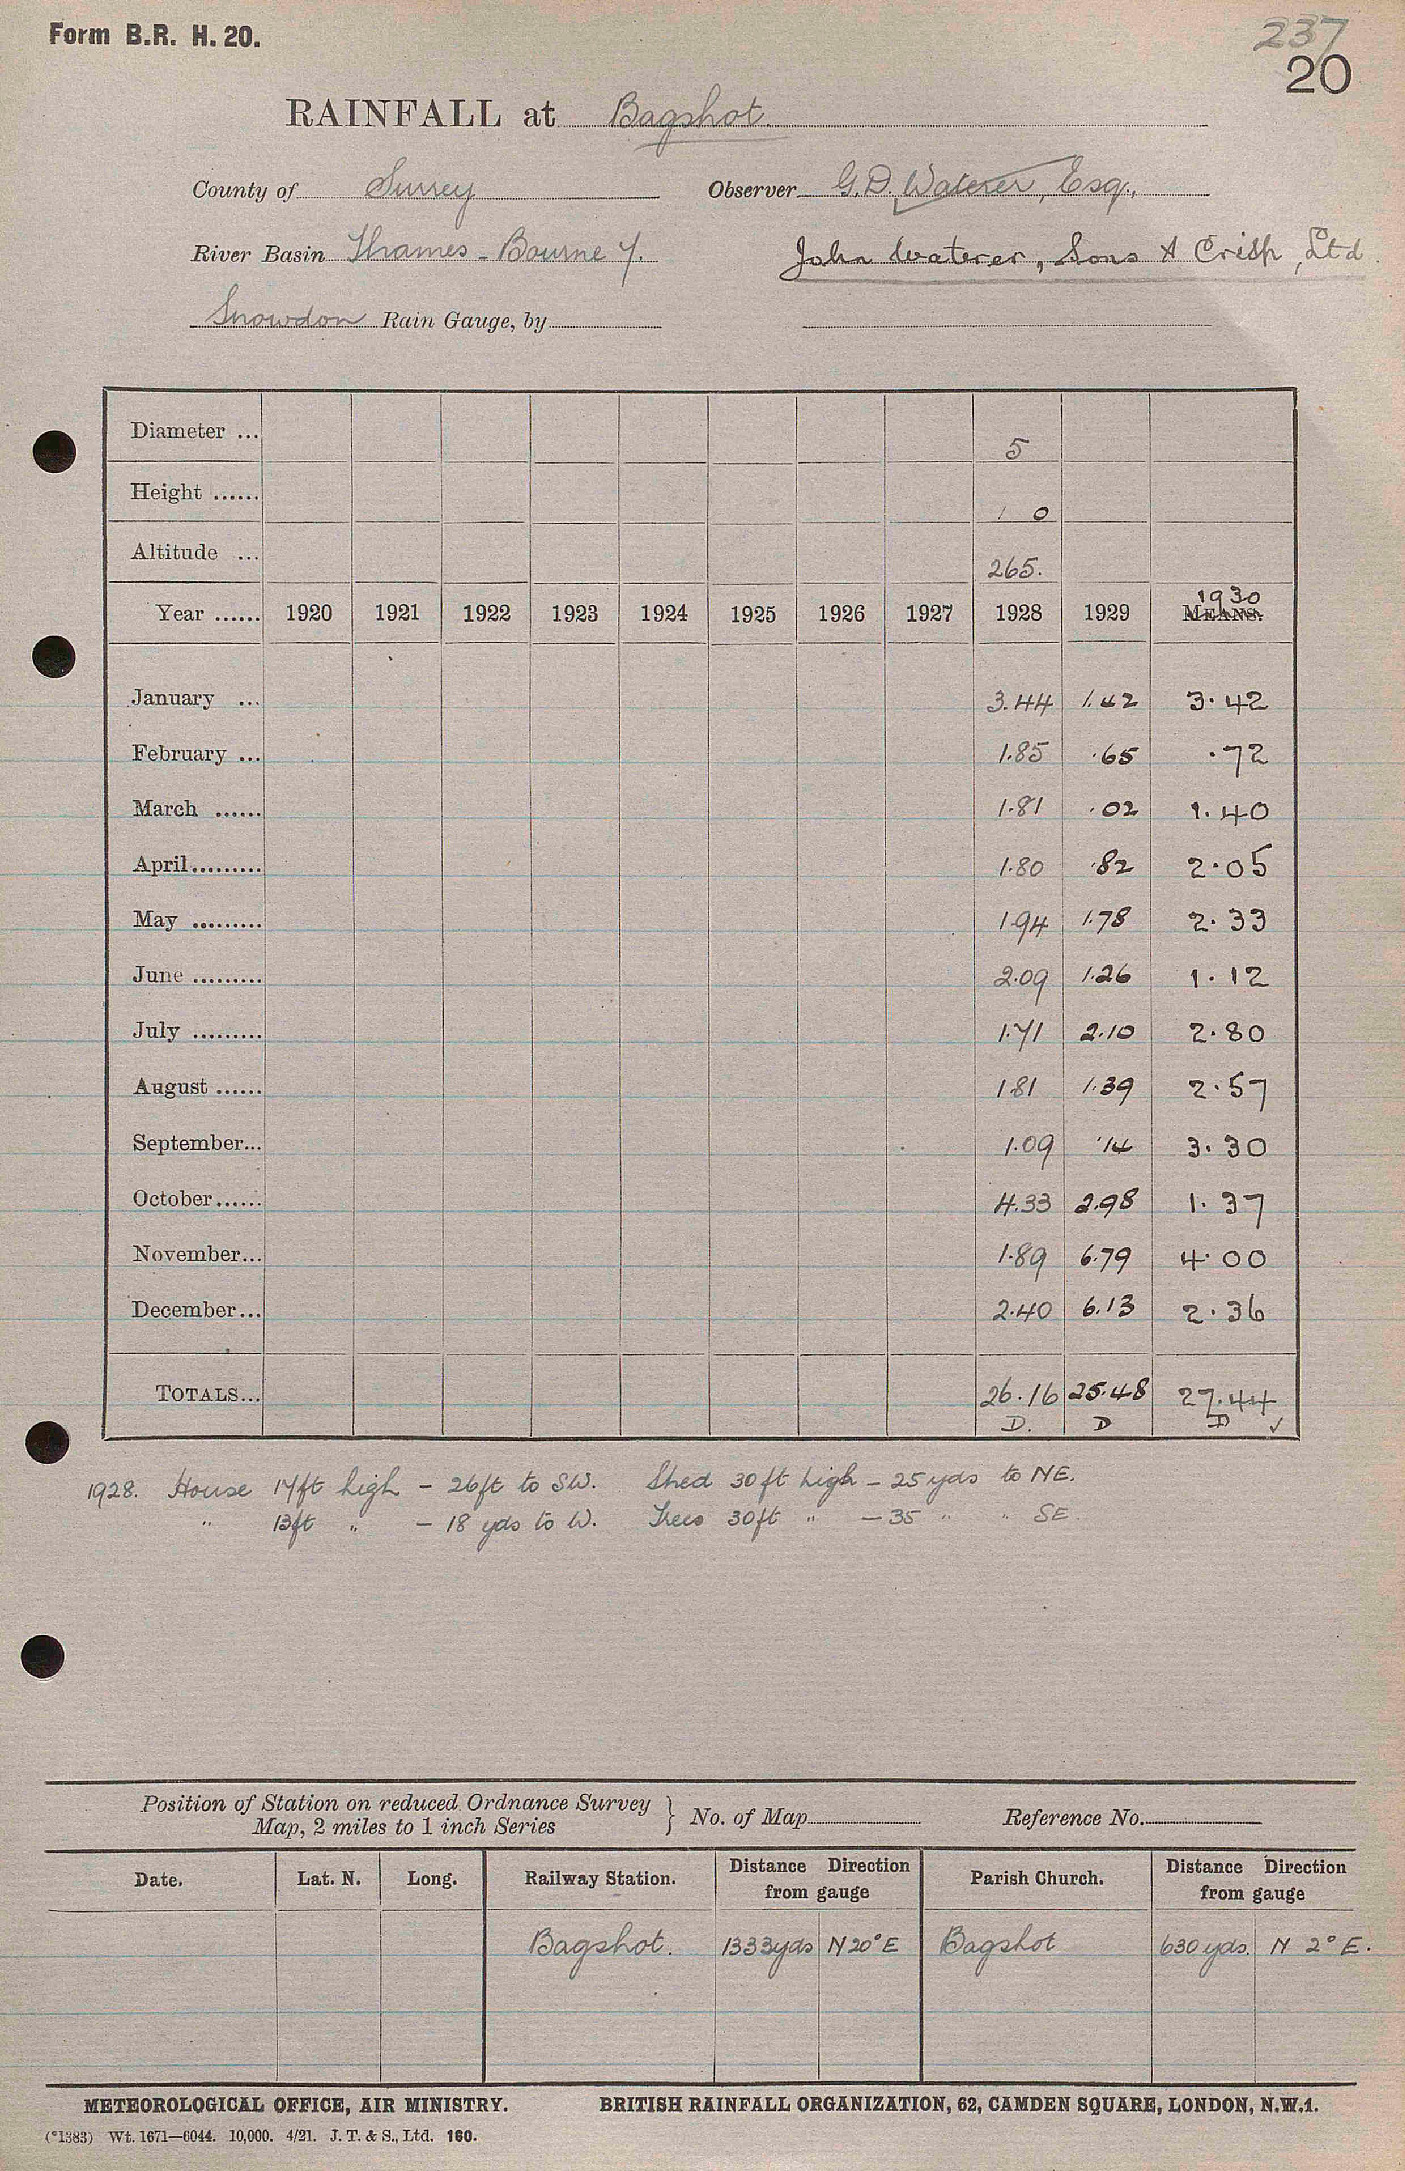 Form B.R. H. 20.
237
20
RAINFALL at Bagshot.
County of Surrey Observer G.D. Waterer, Esq.,
River Basin Thames - Bourne 7. John Waterer, Sons & Crisp, Ltd.
Snowdon Rain Gauge, by
Diameter ... 5
Height ...... 1 0
Altitude ... 265.
1930
Year ...... 1920 1921 1922 1923 1924 1925 1926 1927 1928 1929 MEANS.
January ... 3.44 1.42 3.42
February ... 1.85 .65 .72
March ...... 1.81 .02 1.40
April......... 1.80 .82 2.05
May ......... 1.94 1.78 2.33
June ......... 2.09 1.26 1.12
July ......... 1.71 2.10 2.80
August ...... 1.81 1.39 2.57
September... 1.09 .14 3.30
October...... 4.33 2.98 1.37
November... 1.89 6.79 4.00
December... 2.40 6.13 2.36
TOTALS... 26.16 25.48 27.44
D. D D ✓
1928. House 17ft high - 26ft to SW. Shed 30ft high - 25 yds to NE.
" 13ft " - 18 yds to W. Trees 30ft " - 35 " " SE.
Position of Station on reduced Ordnance Survey } No. of Map Reference No.
Map, 2 miles to 1 inch Series
Date. Lat. N. Long. Railway Station. Distance Direction from gauge Parish Church. Distance Direction from gauge
Bagshot. 1333yds N 20° E Bagshot 630 yds. N 2° E.
METEOROLOGICAL OFFICE, AIR MINISTRY. BRITISH RAINFALL ORGANIZATION, 62, CAMDEN SQUARE, LONDON, N.W.1.
(*1383) Wt. 1671—6044. 10,000. 4/21. J. T. & S., Ltd. 160.